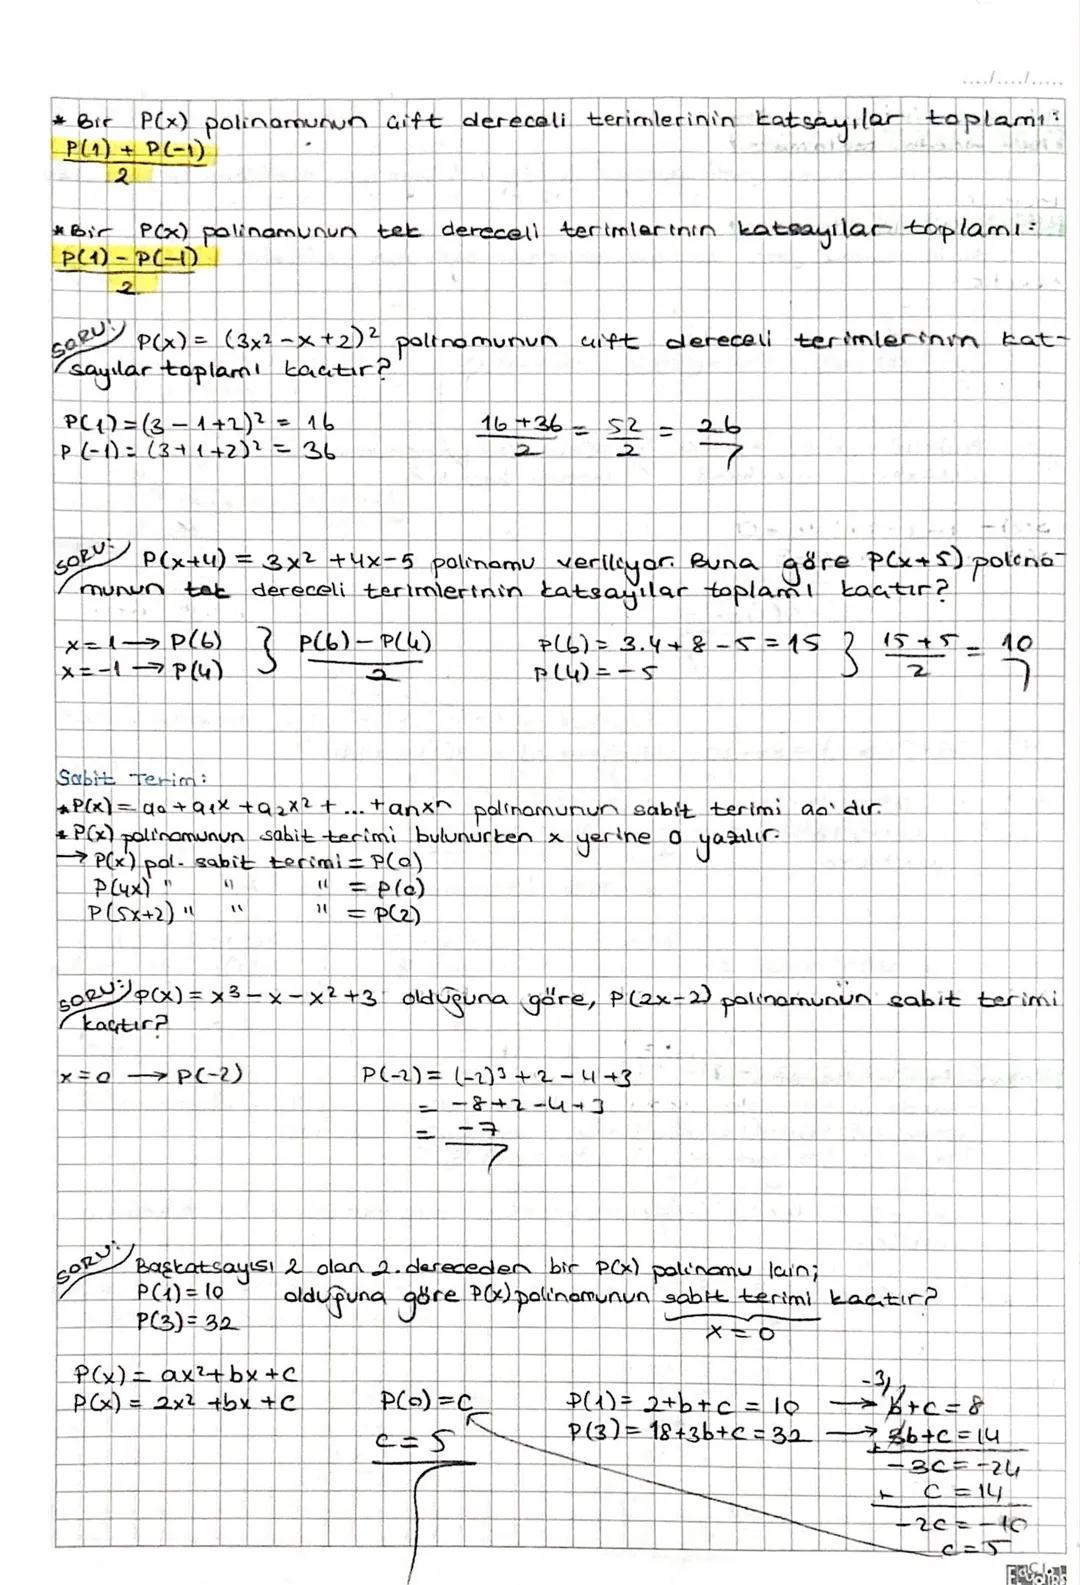 ..../..../.....
* Bir P(x) polinomunun çift dereceli terimlerinin katsayılar toplamı:
P(1) + P(-1)
2
* Bir P(x) polinomunun tek dereceli terimlerinin katsayılar toplamı:
P(1) - P(-1)
2
SORU: P(x) = (3x² - x + 2)² polinomunun çift dereceli terimlerinin kat-
sayılar toplamı kaçtır?
P(1) = (3 - 1 + 2)² = 16    16 + 36 / 2 = 52 / 2 = 26
P(-1) = (3 + 1 + 2)² = 36
SORU: P(x+4) = 3x² + 4x - 5 polinomu veriliyor. Buna göre P(x+5) polino-
munun tek dereceli terimlerinin katsayılar toplamı kaçtır?
x = 1 → P(6) } P(6) - P(4) / 2    P(6) = 3.4 + 8 - 5 = 15 } 15 + 5 / 2 = 10
x = -1 → P(4)    P(4) = -5
Sabit Terim:
* P(x) = a0 + a1x + a2x² + ... + anxⁿ polinomunun sabit terimi a0' dır.
* P(x) polinomunun sabit terimi bulunurken x yerine 0 yazılır.
→ P(x) pol. sabit terimi = P(0)
P(4x) " " " = P(0)
P(5x+2) " " " = P(2)
SORU: P(x) = x³ - x - x² + 3 olduğuna göre, P(2x-2) polinomunun sabit terimi
kaçtır?
x = 0 → P(-2)    P(-2) = (-2)³ + 2 - 4 + 3
= -8 + 2 - 4 + 3
= -7
SORU: Başkatsayısı 2 olan 2. dereceden bir P(x) polinomu için;
P(1) = 10    olduğuna göre P(x) polinomunun sabit terimi kaçtır?
P(3) = 32    x = 0
P(x) = ax² + bx + c
P(x) = 2x² + bx + c    P(0) = c    P(1) = 2 + b + c = 10 → -3/ b + c = 8
c = 5    P(3) = 18 + 3b + c = 32 → 3b + c = 14
-3c = -24
+ c = 14
-2c = -10
c = 5